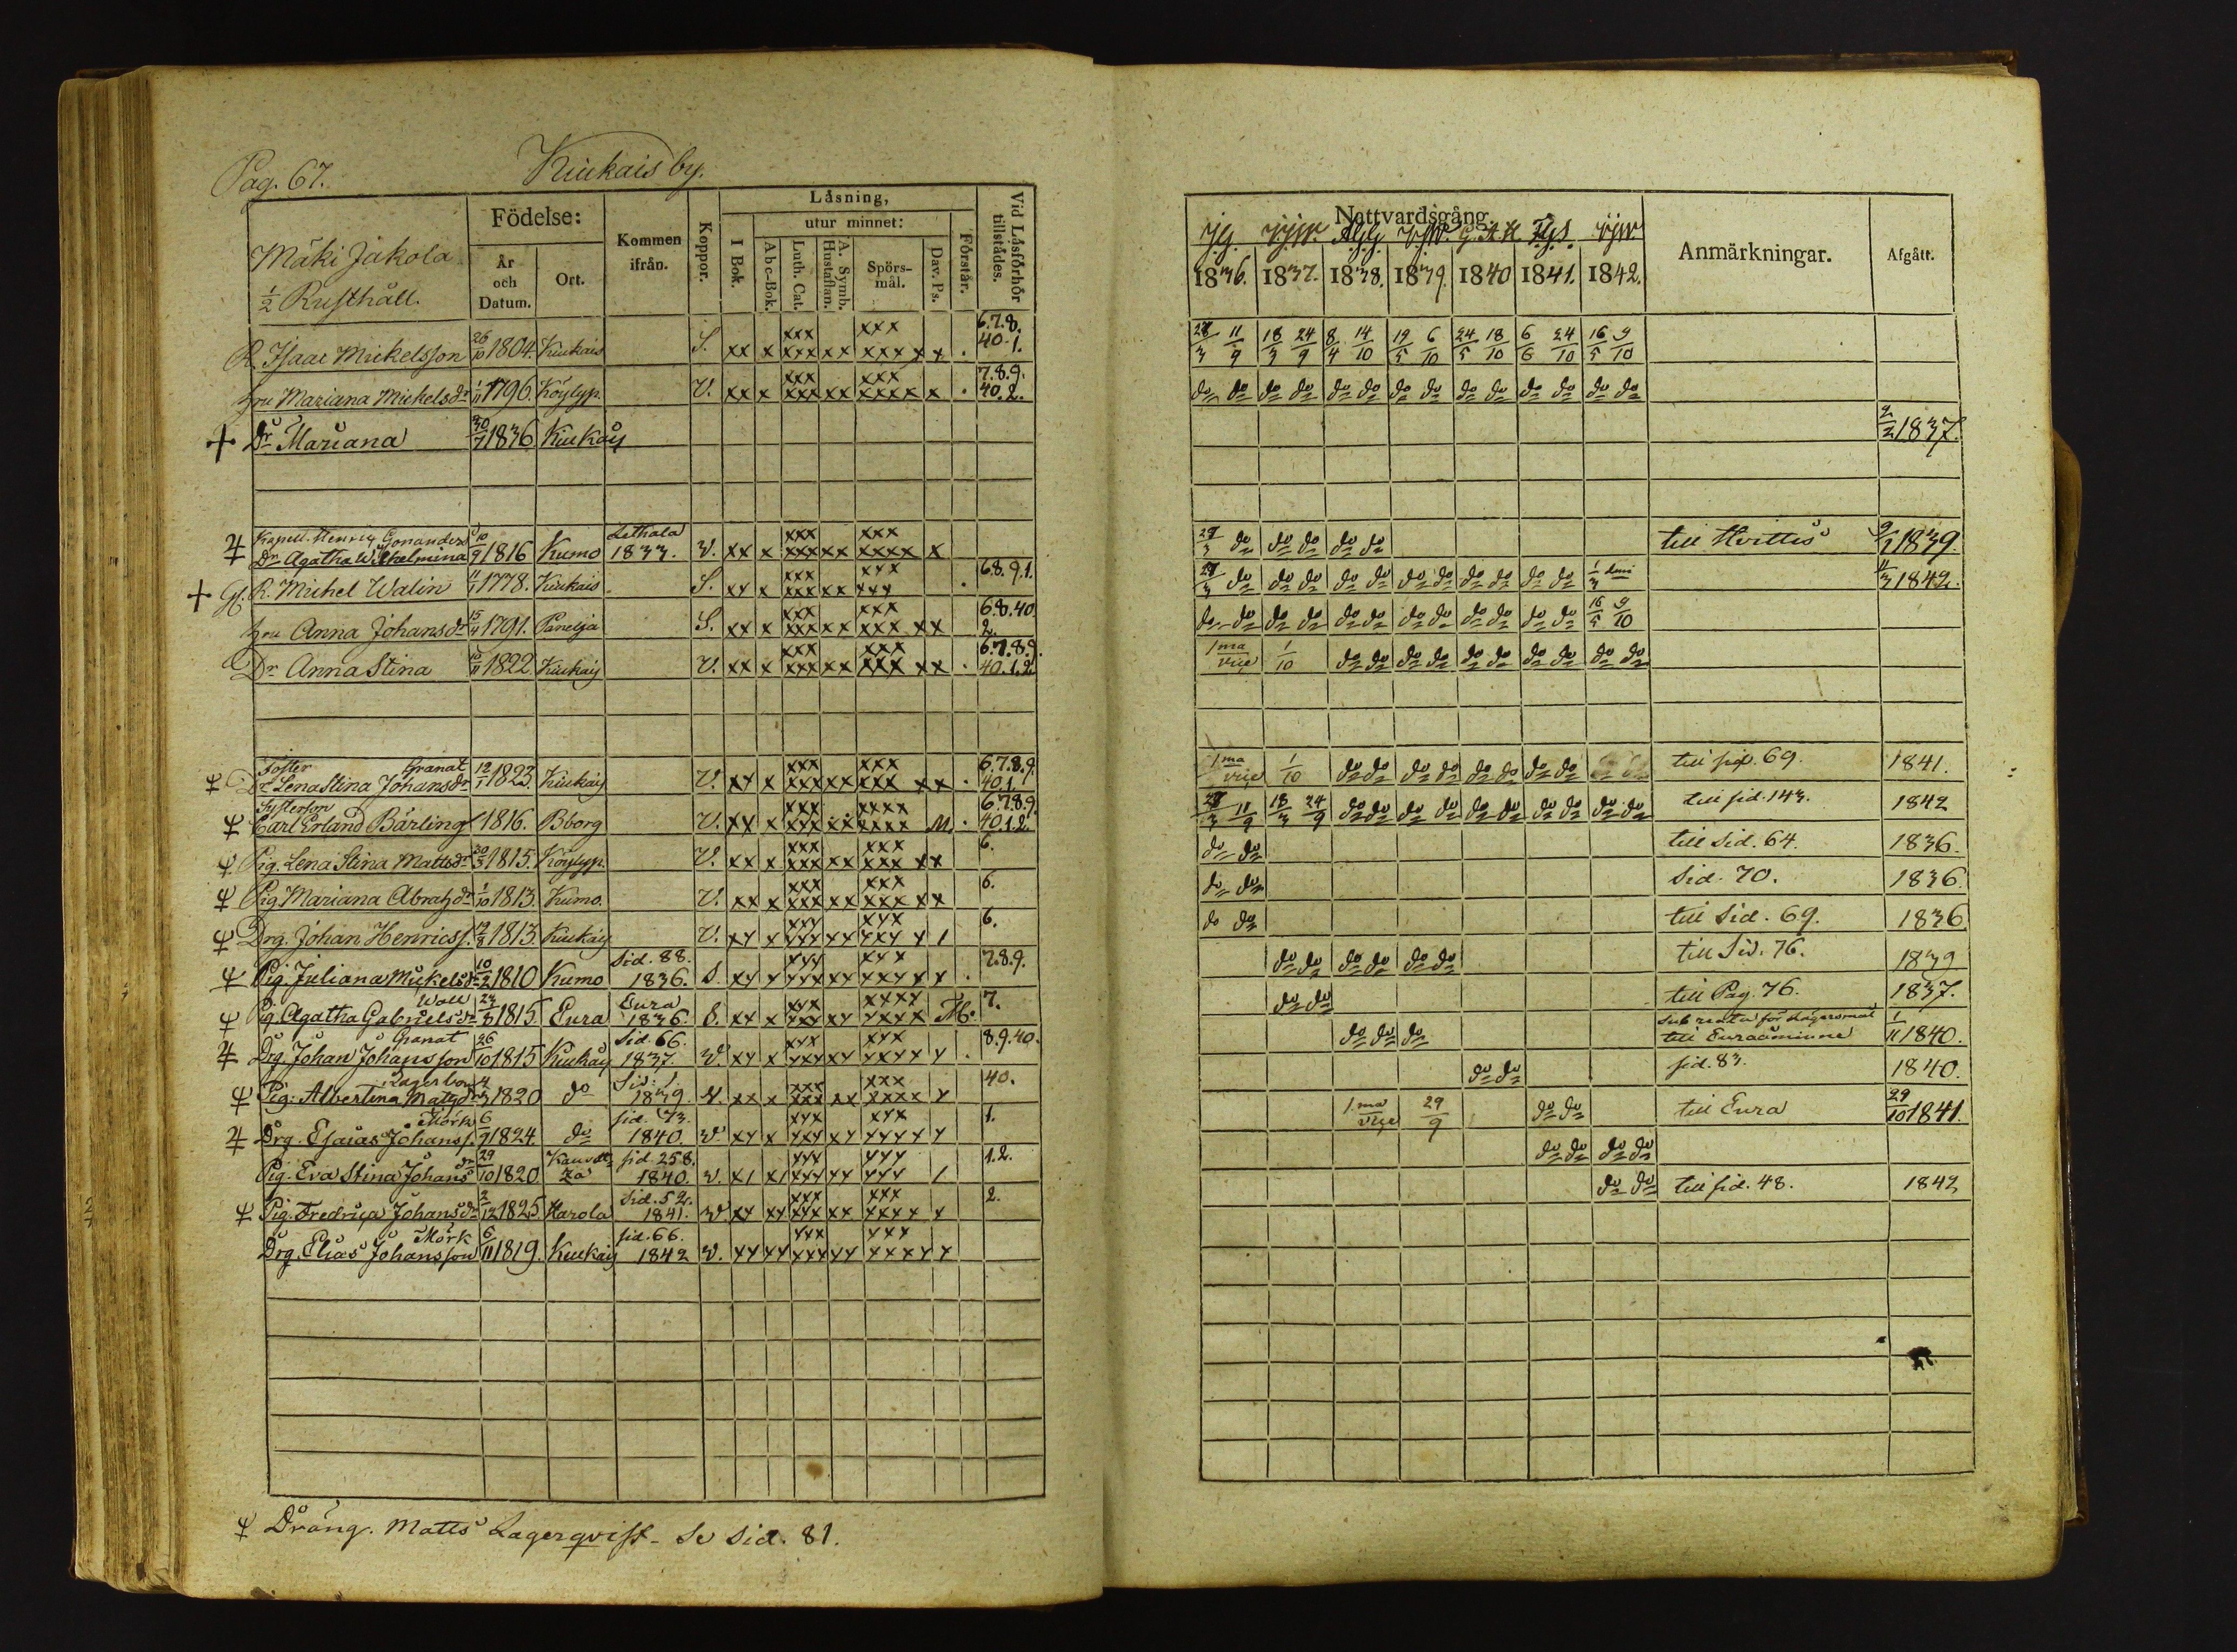 Pag. 67. Kiukais by.
Mäki Jakola
1/2 Rusthåll.
Födelse:
År och Datum.
Ort.
Kommen ifrån.
Koppor.
Läsning,
I Bok.
utur minnet:
Abc-Bok.
Luth. Cat.
A. Symb. Hustaflan.
Spörs-mål.
Dav. Ps.
Förstår.
Vid Läsförhör tillstådes.
R. Isaac Mickelsson 26/10 1804. Kiukais S. xx x xxx xxx xx xxx xxx x x . 6.7.8. 40.1.
hru Mariana Michelsdr 1/11 1796. Köylyp. V. xx x xxx xxx xx xxx xxxx x . 7.8.9. 40.2.
+ Dr Mariana 30/7 1836. Kiukais
Kapell. Henric Gonanders
Dr Agatha Wilhelmina 10/9 1816 Kumo Lethala 1833. V. xx x xxx xxx xx xxx xxxx x
+ Gl. R. Michel Walin 1778. Kiukais S. xx x xxx xxx xx xxx xxx . 6.8.9.1.
hru Anna Johansdr 15/4 1791. Panelja S. xx x xxx xxx xx xxx xxx xx 6.8.40. 2.
Dr Anna Stina 15/11 1822. Kiukais V. xx x xxx xxx xx xxx xxx xx . 6.7.8.9. 40.1.2.
Foster Granat
Dr Lena Stina Johansdr 12/1 1823. Kiukais V. xx x xxx xxx xx xxx xxx xx . 6.7.8.9. 40.1.
Systerson
Carl Erland Bärling 1816. Bborg V. xx x xxx xxx xx xxxx xxxx M . 6.7.8.9. 40.1.2.
Pig. Lena Stina Mattsdr 30/3 1815. Köylyp. V. xx x xxx xxx xx xxx xxx xx 6.
Pig Mariana Abrahdr 1/10 1813. Kumo. V. xx x xxx xxx xx xxx xxx xx 6.
Drg. Johan Henricss. 1813. Kiukais V. xx x xxx xxx xx xxx xxx x / 6.
Pig. Juliana Mickelsdr 10/2 1810 Kumo Sid. 88. 1836. S. xx x xxx xxx xx xxx xxxx x . 7.8.9.
Wall
Pig. Agatha Gabrielsdr 1815. Eura Eura 1836. S. xx x xxx xxx xx xxxx xxxx M. 7.
Granat
Drg. Johan Johansson 26/10 1815 Kiukais Sid. 66. 1837. V. xx x xxx xxx xx xxx xxxx x . 8.9.40.
Pig: Albertina Matsdr 1820 do Sid: 1. 1839. V. xx x xxx xxx xx xxx xxxx x 40.
Mörk
Drg. Esaias Johanss. 6/7 1824. do sid. 73. 1840. V. xx x xxx xxx xx xxx xxxx x 1.
Pig. Eva Stina Johansdr 29/10 1820. sid. 258. 1840. V. x/ x/ xxx xxx xx xxx xxx / 1.2.
Pig. Fredrica Johansdr 2/12 1825 Harola Sid. 52. 1841. V. xx xx xxx xxx xx xxx xxxx x 2.
Mörk
Drg. Elias Johansson 6/11 1819. Kiukais sid. 66. 1842 V. xx xx xxx xxx xx xxx xxxx x
Dräng. Matts Lagerqvist - Se Sid. 81.
Nattvardsgång
1836. 1837. 1838. 1839. 1840 1841. 1842.
Anmärkningar.
Afgått.
11/9 18/3 24/9 8/4 14/10 19/5 6/10 24/5 18/10 6/6 24/10 16/5 9/10
do do do do do do do do do do do do do do
2/2 1837.
do do do do do till Hvittis 1839.
do do do do do do do do do do do 1842.
do do do do do do do do do do do do 16/5 9/10
1ma vice 1/10 do do do do do do do do do do
1ma vice 1/10 do do do do do do do do till sid. 69. 1841.
11/9 18/3 24/9 do do do do do do do do do do till sid. 143. 1842
do do till Sid. 64. 1836.
do do Sid. 70. 1836.
do do till Sid. 69. 1836.
do do do do do do till Sid. 76. 1839
do do till Pag. 76. 1837.
do do do till Euraåminne 1/11 1840.
do do sid. 83. 1840.
1ma vice 29/9 do do till Eura 29/10 1841.
do do do do
do do till sid. 48. 1842